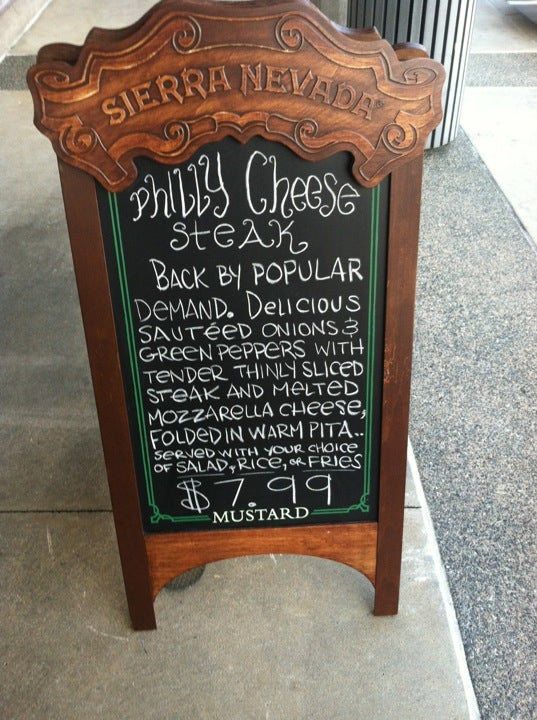 SIERRA NEVADA®
Philly Cheese
Steak
BACK BY POPULAR
DEMAND. DELICIOUS
SAUTÉED ONIONS &
GREEN PEPPERS WITH
TENDER THINLY SLICED
STEAK AND MELTED
MOZZARELLA CHEESE,
FOLDED IN WARM PITA..
SERVED WITH YOUR CHOICE
OF SALAD, RICE, OR FRIES
$7.99
MUSTARD